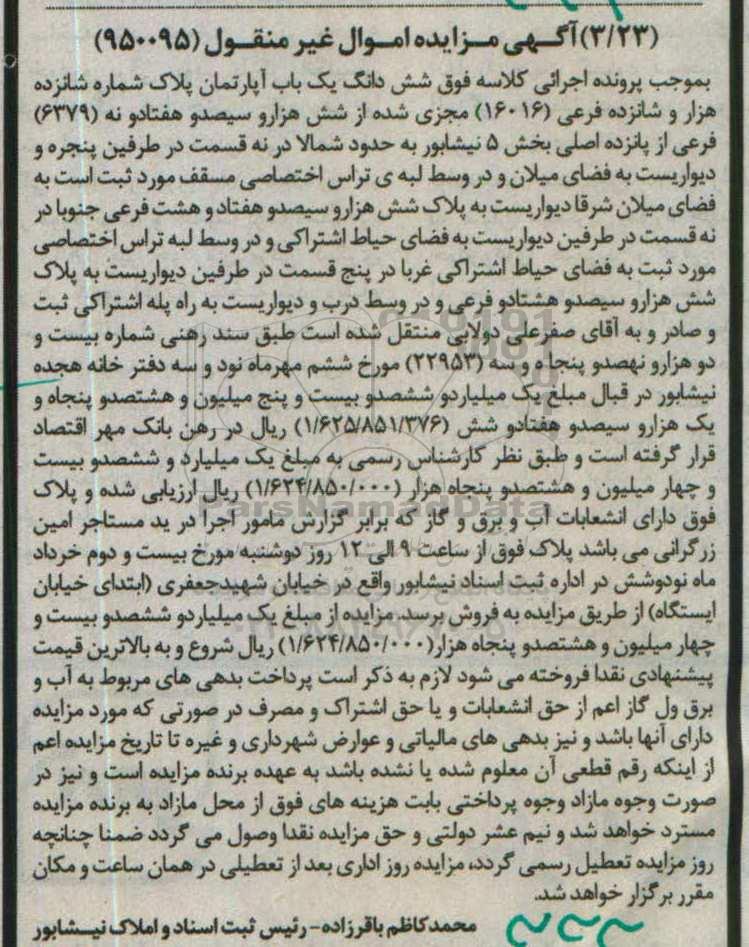 (۳/۲۳) آگهی مزایده اموال غیر منقول (۹۵۰۰۹۵)
بموجب پرونده اجرائی کلاسه فوق شش دانگ یک باب آپارتمان پلاک شماره شانزده
هزار و شانزده فرعی (۱۶۰۱۶) مجزی شده از شش هزارو سیصدو هفتادو نه (۶۳۷۹)
فرعی از پانزده اصلی بخش ۵ نیشابور به حدود شمالا در نه قسمت در طرفین پنجره و
دیواریست به فضای میلان و در وسط لبه ی تراس اختصاصی مسقف مورد ثبت است به
فضای میلان شرقا دیواریست به پلاک شش هزارو سیصدو هفتاد و هشت فرعی جنوبا در
نه قسمت در طرفین دیواریست به فضای حیاط اشتراکی و در وسط لبه تراس اختصاصی
مورد ثبت به فضای حیاط اشتراکی غربا در پنج قسمت در طرفین دیواریست به پلاک
شش هزارو سیصدو هشتادو فرعی و در وسط درب و دیواریست به راه پله اشتراکی ثبت
و صادر و به آقای صفرعلی دولابی منتقل شده است طبق سند رهنی شماره بیست و
دو هزارو نهصدو پنجاه و سه (۲۲۹۵۳) مورخ ششم مهرماه نود و سه دفتر خانه هجده
نیشابور در قبال مبلغ یک میلیاردو ششصدو بیست و پنج میلیون و هشتصدو پنجاه و
یک هزارو سیصدو هفتادو شش (۱/۶۲۵/۸۵۱/۳۷۶) ریال در رهن بانک مهر اقتصاد
قرار گرفته است و طبق نظر کارشناس رسمی به مبلغ یک میلیارد و ششصدو بیست
و چهار میلیون و هشتصدو پنجاه هزار (۱/۶۲۴/۸۵۰/۰۰۰) ریال ارزیابی شده و پلاک
فوق دارای انشعابات آب و برق و گاز که برابر گزارش مامور اجرا در ید مستاجر امین
زرگرانی می باشد پلاک فوق از ساعت ۹ الی ۱۲ روز دوشنبه مورخ بیست و دوم خرداد
ماه نودوشش در اداره ثبت اسناد نیشابور واقع در خیابان شهیدجعفری (ابتدای خیابان
ایستگاه) از طریق مزایده به فروش برسد. مزایده از مبلغ یک میلیاردو ششصدو بیست و
چهار میلیون و هشتصدو پنجاه هزار(۱/۶۲۴/۸۵۰/۰۰۰) ریال شروع و به بالاترین قیمت
پیشنهادی نقدا فروخته می شود لازم به ذکر است پرداخت بدهی های مربوط به آب و
برق ول گاز اعم از حق انشعابات و یا حق اشتراک و مصرف در صورتی که مورد مزایده
دارای آنها باشد و نیز بدهی های مالیاتی و عوارض شهرداری و غیره تا تاریخ مزایده اعم
از اینکه رقم قطعی آن معلوم شده یا نشده باشد به عهده برنده مزایده است و نیز در
صورت وجوه مازاد وجوه پرداختی بابت هزینه های فوق از محل مازاد به برنده مزایده
مسترد خواهد شد و نیم عشر دولتی و حق مزایده نقدا وصول می گردد ضمنا چنانچه
روز مزایده تعطیل رسمی گردد، مزایده روز اداری بعد از تعطیلی در همان ساعت و مکان
مقرر برگزار خواهد شد.
محمدکاظم باقرزاده - رئیس ثبت اسناد و املاک نیشابور
ParsNamadData